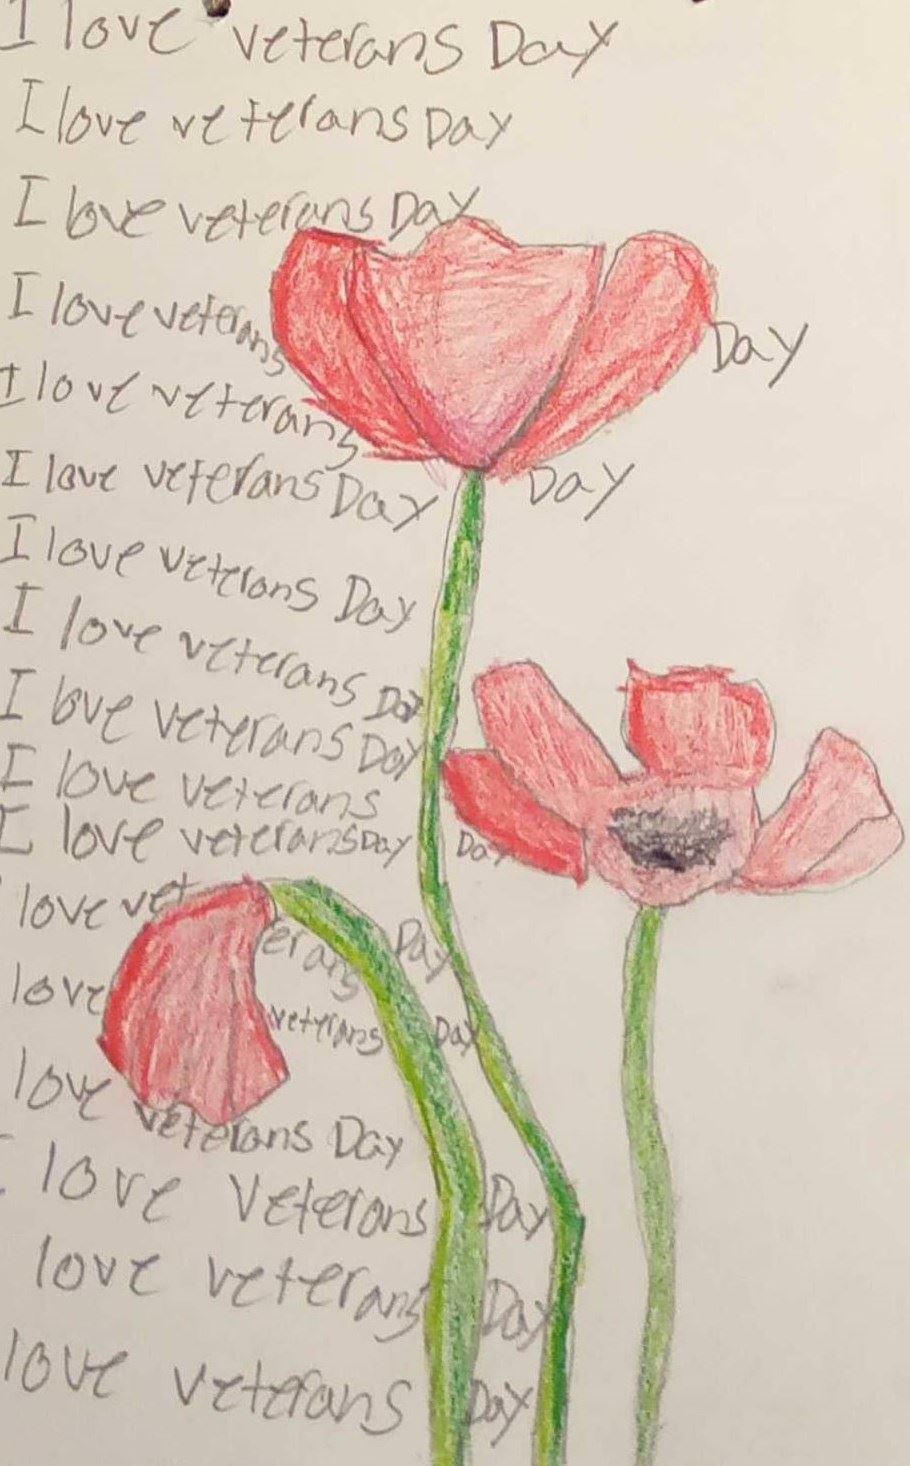 I love veterans Day
I love veterans Day
I love veterans Day
I love veterans Day
I love veterans Day
I love veterans Day
I love veterans Day
I love veterans Day
I love veterans Day
I love veterans Day
I love veterans Day
love veterans Day
love veterans Day
love veterans Day
I love veterans Day
love veterans Day
love veterans Day